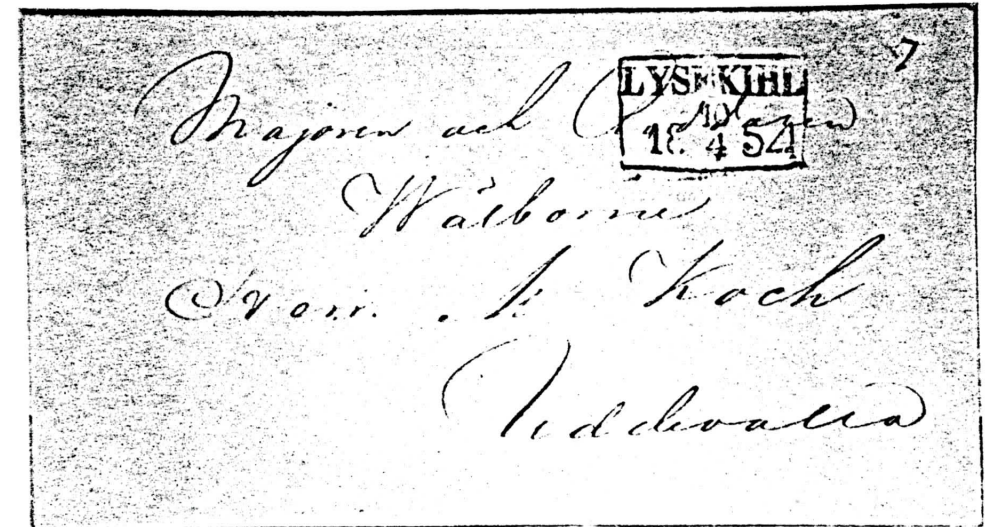 7
LYSEKIHL
18 4 54
Majoren och
Wälborne
Herr. Koch
Uddevalla